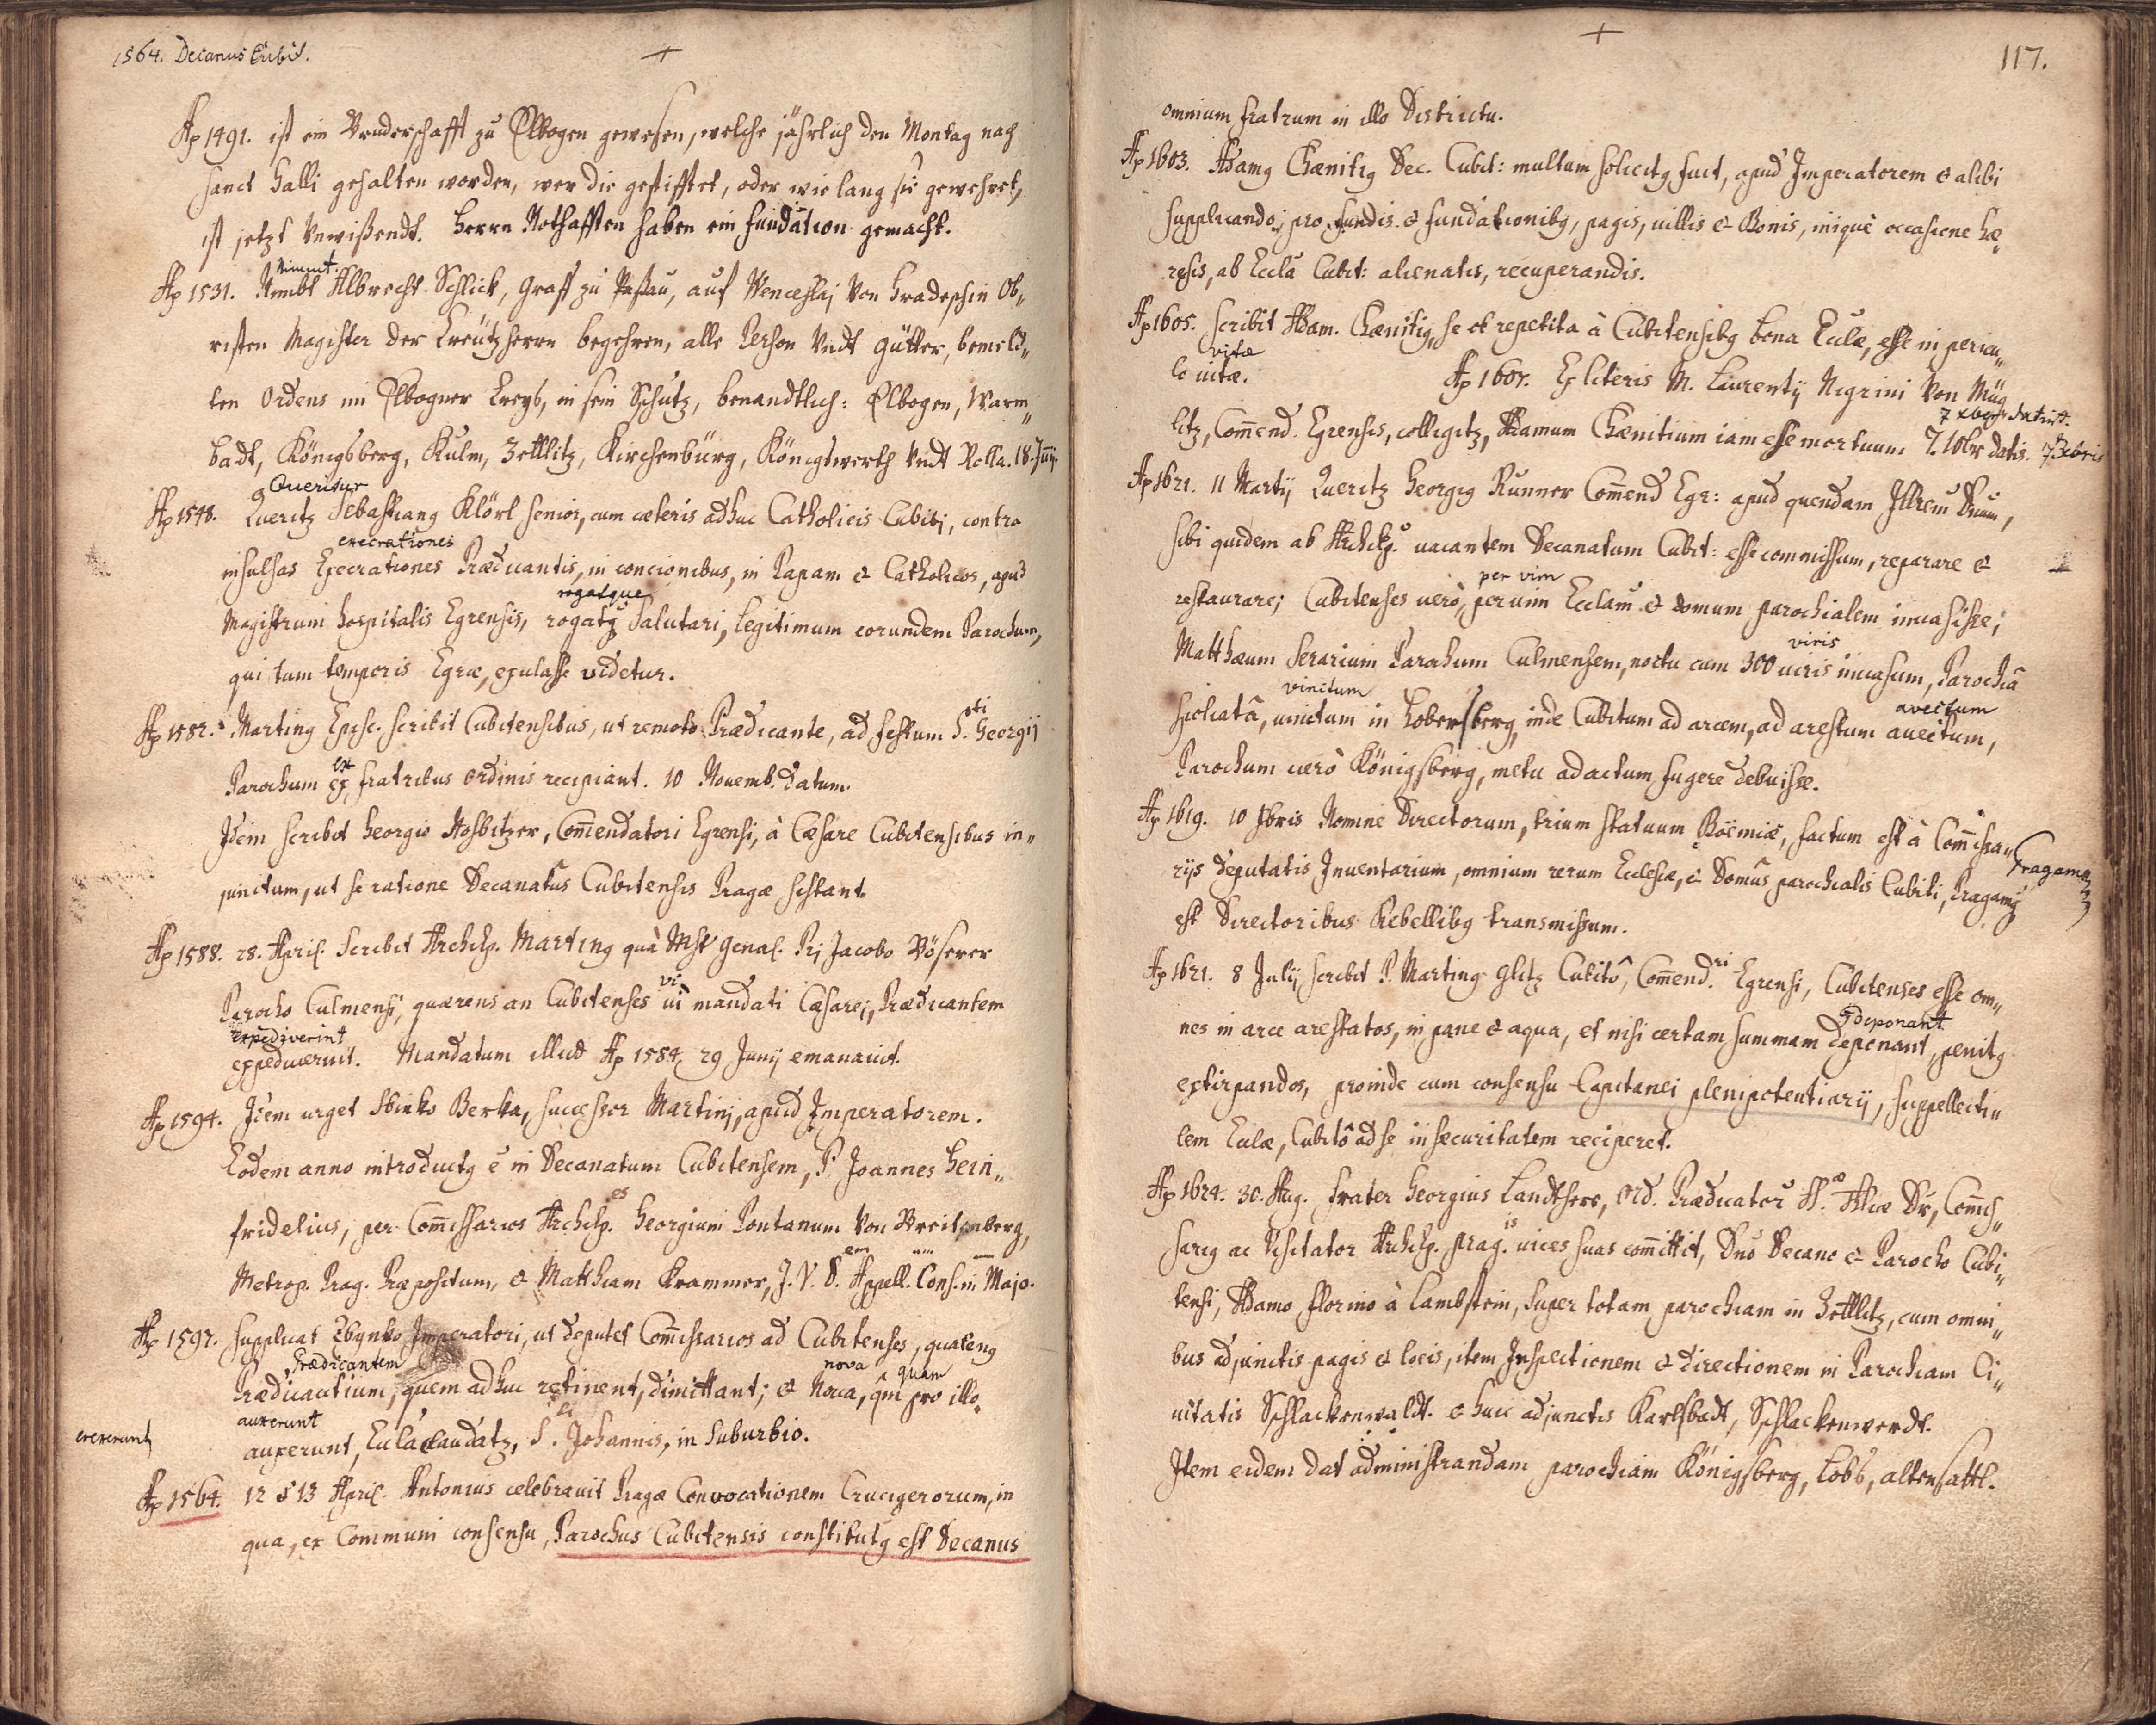 1564. Decanus Cubit.
Aõ 1491. ist ein Bruderschafft zu Elbogen gewesen, welche jährlich den Montag nach
Sanct Galli gehalten worden, wer die gestifftet, oder wie lang sie gewehret,
ist jetzt Vnwißendt. Herrn Nothafften haben ein fundation gemacht.
Nimmt
Aõ 1531. Nimbt Albrecht Schlick, Graff zu Paßau, auf Wenceslaj Von Hradeschin Ob„
risten Magister der Creützherrn begehren, alle Person Vndt Gütter, bemeld„
ten Ordens im Elbogner Creyß, in sein Schutz, benandtlich: Elbogen, Warm„
badt, Königsberg, Kulm, Zettlitz, Kirchenbürg, Königswerth Vndt Rolla. 18. Junij.
Queritur
Aõ 1548. Queritz Sebastiang Klörl senior, cum cæteris adhuc Catholicis Cubiti, contra
execrationes
insulsas Execrationes Prædicantis, in concionibus, in Papam & Catholicos, apud
rogatque
Magistrum hospitalis Egrensis, rogatq̃ Salutari, legitimum eorundem Parochum,
qui tum temporis Egræ, exulasse videtur.
sti
Aõ 1582. Marting Episc. scribit Cubitensibus, ut remoto Prædicante, ad festum S. Georgij
ex
Parochum ex fratribus ordinis recipiant. 10 Novemb. datum.
Idem scribit Georgio Hosbitzer, Com̃endatori Egrensi, à Cæsare Cubitensibus in„
junctum, ut se ratione Decanatûs Cubitensis Pragæ sistant.
Aõ 1588. 28. April. Scribit Archiep. Marting quà Mgr Genal. Pri Jacobo Böserer
vi
Parocho Culmensi, quærens an Cubitenses ui mandati Cæsarej, Prædicantem
expediverint
expediuerint. Mandatum illud Aõ 1584. 29 Junij emanauit.
Aõ 1594. Idem urget Sbinko Berka, successor Martinj, apud Imperatorem.
Eodem anno introductg ẽ in Decanatum Cubitensem, P. Joannes Hein„
es
fridelius, per Com̃issarios Archiep. Georgium Pontanum Von Breitenberg,
em um
Metrop. Prag. Præpositum, & Matthiam Krammer, J. V. D. Appell. Cons. in Majo.
Aõ 1597. supplicat Zbynko Imperatori, ut deputet Com̃issarios ad Cubitenses, quateng
Prædicantem nova quam
Prædicantium, quem adhuc retinent, dimittant; & Noua, qm̃ pro illo
auxerunt
ererexunt
auxerunt, Eccla claudatz, S. Johannis, in Suburbio.
Aõ 1564. 12 & 13 April. Antonius celebrauit Pragæ Convocationem Crucigerorum, in
qua, ex Communi consensu, Parochus Cubitensis constitutg est Decanus
117.
omnium fratrum in illo Districtu.
Aõ 1603. Adamg Chænitig Dec. Cubit: multum solicitg fuit, apud Imperatorem & alibi
supplicando, pro fundis & fundationibg, pagis, uillis & Bonis, iniquè occasione hæ„
resis, ab Eccla Cubit: alienatis, recuperandis.
Aõ 1605. scribit Adam. Chænitig, se ob repetita à Cubitensibg bona Eccle, esse in pericu„
vitæ
lo uitæ. Aõ 1607. Ex literis M. Laurentij Nigrini Von Müg„
7 xbris datis.
litz, Com̃end. Egrensis, colligitz, Adamum Chænitium iam esse mortuum. 7. 10br datis. 7 Xbris
Aõ 1621. 11 Martij Queritz Georgig Runner Com̃end Egr: apud quendam Illrem Dnum,
sibi quidem ab Archiep. uacantem Decanatum Cubit: esse commissum, reparare &
per vim
restaurare; Cubitenses uerò, per uim Ecclam & domum parochialem inuasisse;
viris
Matthæum Serarium Parochum Culmensem, noctu cum 300 uiris inuasum, Parochiâ
vinctum avectum
spoliatâ, uinctum in Lobersberg, inde Cubitum ad arcem, ad arestum auectum,
Parochum uerò Königsberg, metu adactum fugere debuisse.
Aõ 1619. 10 Xbris Nomine Directorum, trium statuum Boëmiæ, factum est à Com̃issa„
Pragamq
rijs deputatis Inuentarium, omnium rerum Ecclesiæ, & Domûs parochialis Cubiti, Pragamq̃
est Directoribus Rebellibg transmissum.
Aõ 1621. 8 Julij scribit P. Marting Glitz Cubitô, Com̃end.ri Egrensi, Cubitenses esse om„
deponant
nes in arce arestatos, in pane & aqua, et nisi certam summam deponant, penitg
extirpandos, proinde cum consensu Capitanei plenipotentiarij, suppellecti„
lem Eccle, Cubitô ad se in securitatem reciperet.
Aõ 1624. 30. Aug. frater Georgius Landtherr, Ord. Prædicator SS.ae Thlæ Dr, Com̃is„
is
sarig ac Visitator Archiep. Prag. uices suas com̃ittit, Dno Decano & Parocho Cubi„
tensi, Adamo Florino à Lambstein, super totam parochiam in Zettlitz, cum omni„
bus adjunctis pagis & locis, item Inspectionem & directionem in Parochiam Ci„
uitatis Schlackenwaldt. & huic adjunctis Karlsbadt, Schlackenwerdt.
Item eidem dat administrandam parochiam Königsberg, Lobs, altensattl.